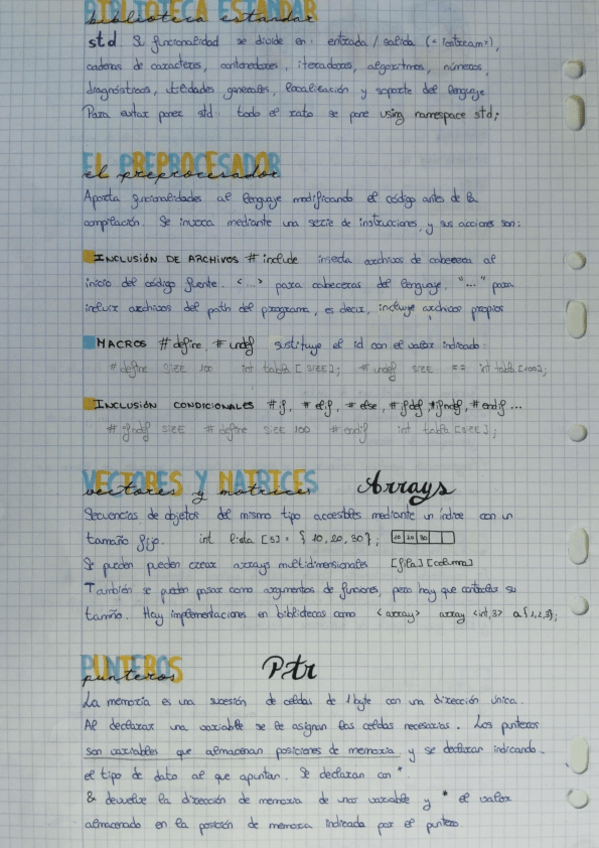 BIBLIOTECA ESTANDAR
biblioteca estandar
std. Su funcionalidad se divide en: entrada/salida (<iostream>),
cadenas de caracteres, contenedores, iteradores, algoritmos, números,
diagnósticos, utilidades generales, localización y soporte del lenguaje
Para evitar poner std:: todo el rato se pone using namespace std;
EL PREPROCESADOR
el preprocesador
Aporta funcionalidades al lenguaje modificando el código antes de la
compilación. Se invoca mediante una serie de instrucciones, y sus acciones son:
INCLUSIÓN DE ARCHIVOS #include inserta archivos de cabecera al
inicio del código fuente. <...> para cabeceras del lenguaje, "..." para
incluir archivos del path del programa, es decir, incluye archivos propios
MACROS #define, #undef sustituye el id con el valor indicado:
#define SIZE 100 int tabla[SIZE]; #undef SIZE == int tabla[100];
INCLUSIÓN CONDICIONALES #if, #elif, #else, #ifdef, #ifndef, #endif...
#ifndef SIZE #define SIZE 100 #endif int tabla[SIZE];
VECTORES Y MATRICES
vectores y matrices Arrays
Secuencias de objetos del mismo tipo accesibles mediante un índice con un
tamaño fijo. int lista[5] = {10,20,30}; 10 20 30
Se pueden pueden crear arrays multidimensionales [fila][columna]
También se pueden pasar como argumentos de funciones, pero hay que controlar su
tamño. Hay implementaciones en bibliotecas como <array> array<int,3> a{1,2,3};
PUNTEROS
punteros Ptr
La memoria es una sucesión de celdas de 1 byte con una dirección única.
Al declarar una variable se le asignan las celdas necesarias. Los punteros
son variables que almacenan posiciones de memoria y se declaran indicando
el tipo de dato al que apuntan. Se declaran con *.
& devuelve la dirección de memoria de una variable y * el valor
almacenado en la posición de memoria indicada por el puntero.